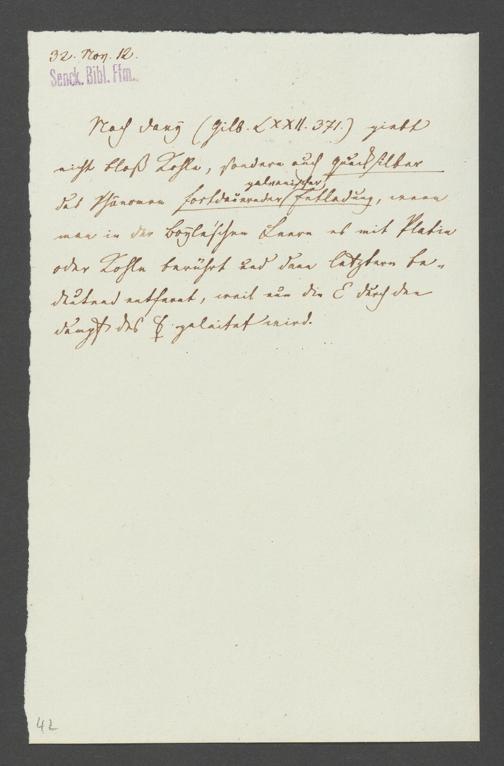 32. Nov. 12.
Senck. Bibl. Ffm.
Nach Davy (Gilb. LXXII. 371.) giebt
nicht bloß Kohle, sondern auch Quecksilber
galvanischer
das Phänomen fortdauernder Entladung, wenn
man in der Boyle'schen Leere es mit Platin
oder Kohle berührt und dann letztere be-
deutend entfernt, weil nun die E durch den
Dampf des ☿ geleitet wird.
42